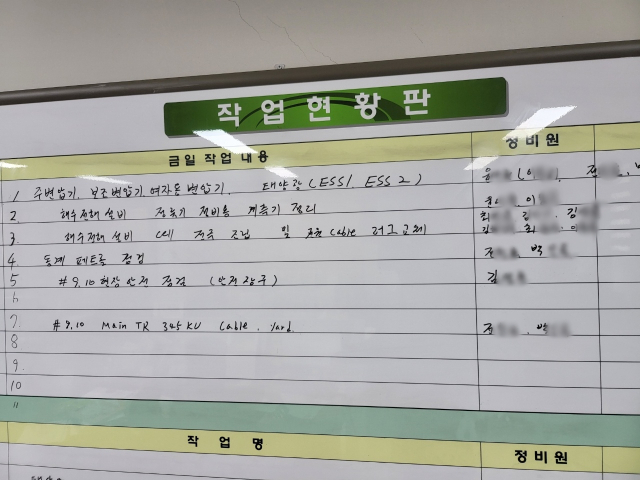 작업현황판
금일 작업 내용 정비원
1 주변압기, 보조변압기, 여자용 변압기, 태양광 (ESS1 ESS2) 윤
2 해수전해 설비 정류기 정비용 계측기 정리 이
3 해수전해 설비 Cell 전극 조립 및 Cable 러그교체 최 김
4 동계 패트롤 점검 박
5 #9,10 현장 안전 점검 (안전장구) 김
6
7. #9,10 Main TR 345KV Cable, Yard 박
8
9.
10
11
작 업 명 정비원